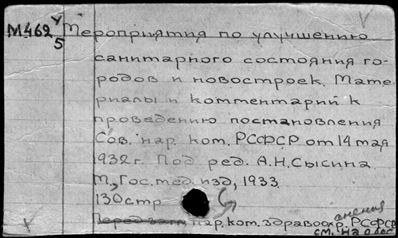 М462 у/5 Мероприятия по улучшению
санитарного состояния го-
родов и новостроек. Мате-
риалы и комментарий к
проведению постановления
Сов. нар. ком. РСФСР от 14 мая
1932 г. Под ред. А.Н. Сысина
М., Гос. мед. изд, 1933.
130 стр
Перед загл. нар. ком. здравоохранения РСФСР
см. на обос